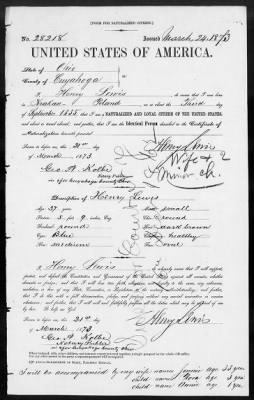 [FORM FOR NATURALIZED CITIZEN.]
No. 28218 Issued March 24, 1873
UNITED STATES OF AMERICA.
State of Ohio
County of Cuyahoga
I, Henry Lewis do swear that I was born
in Krakau Poland on or about the Third day
of September 1835 that I am a NATURALIZED AND LOYAL CITIZEN OF THE UNITED STATES,
and about to travel abroad; and further, that I am the Identical Person described in the Certificate
of Naturalization herewith presented.
Sworn to before me this 21st day
of March 1873
Henry Lewis
Wife & 2
minor ch.
Geo. A. Kolbe
Notary Public
Description of Henry Lewes
Age: 37 years
Mouth: small
Stature: 5 feet 9 inches, Eng.
Chin: round
Forehead: round
Hair: dark brown
Eyes: Blue
Complexion: healthy
Nose: medium
Face: oval
I, Henry Lewis do solemnly swear that I will support,
protect, and defend the Constitution and Government of the United States against all enemies, whether
domestic or foreign; and that I will bear true faith, allegiance, and loyalty to the same, any ordinance,
resolution, or law of any State, Convention, or Legislature to the contrary notwithstanding; and further,
that I do this with a full determination, pledge, and purpose, without any mental reservation or evasion
whatsoever; and further, that I will well and faithfully perform all the duties which may be required of
me by law: So help me God.
Sworn to before me this 21st day
of March 1873
Henry Lewis
Geo. A. Kolbe
Notary Public
I will be accompanied by my wife name Jennie age 33 years
child name Rosa age 9 yrs
child name Annie age 1 yrs